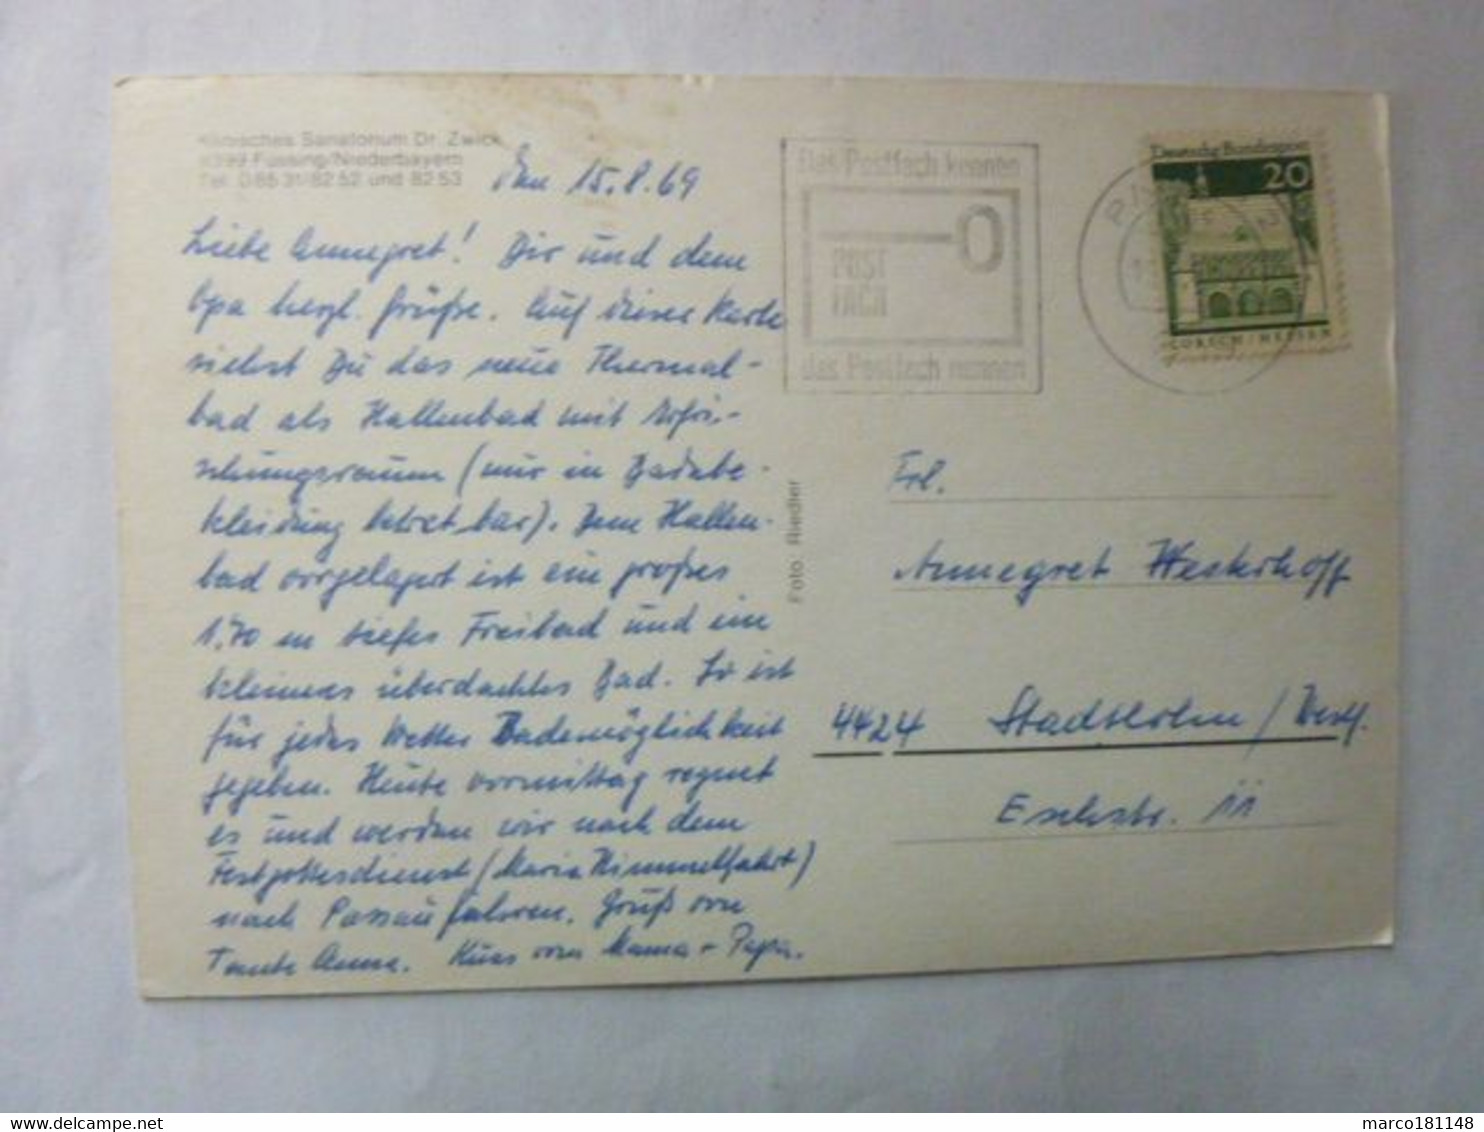 Klinisches Sanatorium Dr. Zwick
8399 Füssing/Niederbayern
Tel. 085 31/82 52 und 82 53
Den 15.8.69
Liebe Annegret! Dir und dem
Opa herzl. Grüße. Auf dieser Karte
siehst Du das neue Thermal-
bad als Hallenbad mit Erfri-
schungsraum (nur in Badebe-
kleidung betretbar). Dem Hallen-
bad vorgelagert ist ein großes
1,70 m tiefes Freibad und ein
kleineres überdachtes Bad. So ist
für jedes Wetter Bademöglichkeit
gegeben. Heute vormittag regnet
es und werden wir nach dem
Festgottesdienst (Maria Himmelfahrt)
nach Passau fahren. Gruß von
Tante Anna. Kuss von Mama + Papa.
Foto: Riedler
Das Postfach kennen
POST
FACH
das Postfach nennen
Deutsche Bundespost
20
LORSCH/HESSEN
Frl.
Annegret Westerhoff
4424 Stadtlohn/Westf.
Eschstr. 11
marco181148